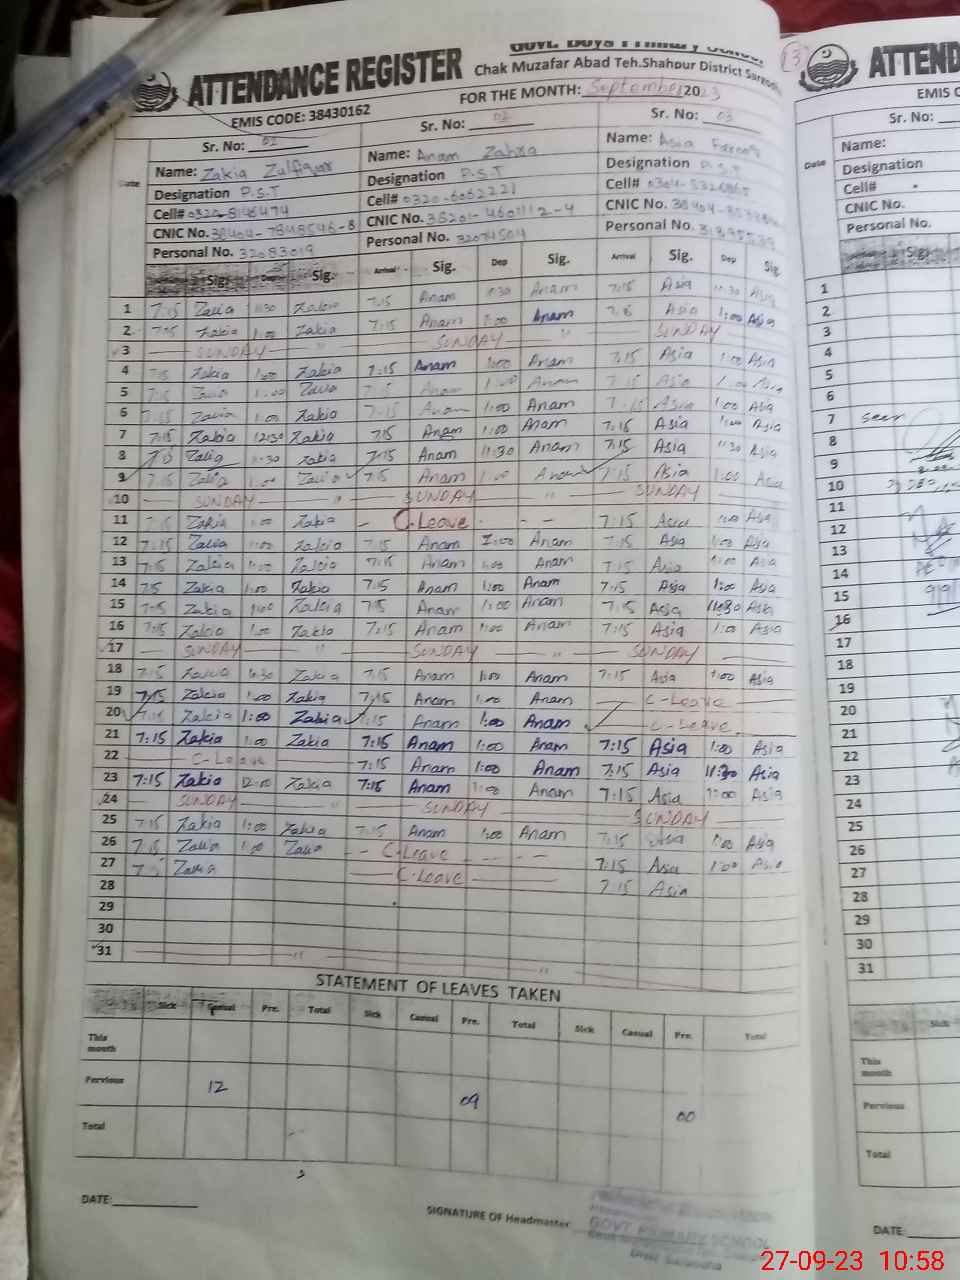 Govt. Boys Primary School
ATTENDANCE REGISTER
Chak Muzafar Abad Teh.Shahpur District Sargodha
EMIS CODE: 38430162
FOR THE MONTH: September 2023
Sr. No: 01 Sr. No: 02 Sr. No: 03
Date
Name: Zakia Zulfiqar Name: Anam Zahra Name: Asia
Designation P.S.T Designation P.S.T Designation P.S.T
Cell# 0320-8146474 Cell# 0320-6062221 Cell#
CNIC No. 38404-7848546-8 CNIC No. 38201-4601112-4 CNIC No.
Personal No. 32083019 Personal No. 32074504 Personal No.
Sig. Sig. Arrival Sig. Dep Sig. Arrival Sig. Dep Sig.
1 7:15 Zakia 11:30 Zakia 7:15 Anam 11:30 Anam 7:15 Asia 11:30 Asia
2 7:15 Zakia 1:00 Zakia 7:15 Anam 1:00 Anam 7:15 Asia 1:00 Asia
3 SUNDAY " SUNDAY " SUNDAY
4 7:15 Zakia 1:00 Zakia 7:15 Anam 1:00 Anam 7:15 Asia 1:00 Asia
5 7:15 Zakia 1:00 Zakia 7:15 Anam 1:00 Anam 7:15 Asia 1:00 Asia
6 7:15 Zakia 1:00 Zakia 7:15 Anam 1:00 Anam 7:15 Asia 1:00 Asia
7 7:15 Zakia 12:30 Zakia 7:15 Anam 1:00 Anam 7:15 Asia 1:00 Asia
8 7:15 Zakia 11:30 Zakia 7:15 Anam 11:30 Anam 7:15 Asia 11:30 Asia
9 7:15 Zakia 1:00 Zakia 7:15 Anam 1:00 Anam 7:15 Asia 1:00 Asia
10 SUNDAY " SUNDAY " SUNDAY
11 7:15 Zakia 1:00 Zakia - C.Leave - - - 7:15 Asia 1:00 Asia
12 7:15 Zakia 1:00 Zakia 7:15 Anam 1:00 Anam 7:15 Asia 1:00 Asia
13 7:15 Zakia 1:00 Zakia 7:15 Anam 1:00 Anam 7:15 Asia 1:00 Asia
14 7:15 Zakia 1:00 Zakia 7:15 Anam 1:00 Anam 7:15 Asia 1:00 Asia
15 7:15 Zakia 1:00 Zakia 7:15 Anam 1:00 Anam 7:15 Asia 11:30 Asia
16 7:15 Zakia 1:00 Zakia 7:15 Anam 1:00 Anam 7:15 Asia 1:00 Asia
17 SUNDAY " SUNDAY " SUNDAY
18 7:15 Zakia Zakia 7:15 Anam 1:00 Anam 7:15 Asia 1:00 Asia
19 7:15 Zakia 1:00 Zakia 7:15 Anam 1:00 Anam C-Leave
20 7:15 Zakia 1:00 Zakia 7:15 Anam 1:00 Anam C-Leave
21 7:15 Zakia 1:00 Zakia 7:15 Anam 1:00 Anam 7:15 Asia 1:00 Asia
22 C-Leave 7:15 Anam 1:00 Anam 7:15 Asia 11:30 Asia
23 7:15 Zakia 12:00 Zakia 7:15 Anam 1:00 Anam 7:15 Asia 1:00 Asia
24 SUNDAY " SUNDAY SUNDAY
25 7:15 Zakia 1:00 Zakia 7:15 Anam 1:00 Anam 7:15 Asia 1:00 Asia
26 7:15 Zakia 1:00 Zakia - - C-Leave - - - - 7:15 Asia 1:00 Asia
27 7:15 Zakia C-Leave 7:15 Asia
28
29
30
31 " "
STATEMENT OF LEAVES TAKEN
Sick Casual Pre. Total Sick Casual Pre. Total Sick Casual Pre. Total
This month
Pervious 12 09 00
Total
DATE:
SIGNATURE OF Headmaster
GOVT PRIMARY SCHOOL
ATTENDA
EMIS C
Sr. No:
Date
Name:
Designation
Cell#
CNIC No.
Personal No.
Sig
1
2
3
4
5
6
7 seen
8
9
10
11
12
13
14
15
16
17
18
19
20
21
22
23
24
25
26
27
28
29
30
31
Sick
This month
Pervious
Total
DATE:
27-09-23 10:58